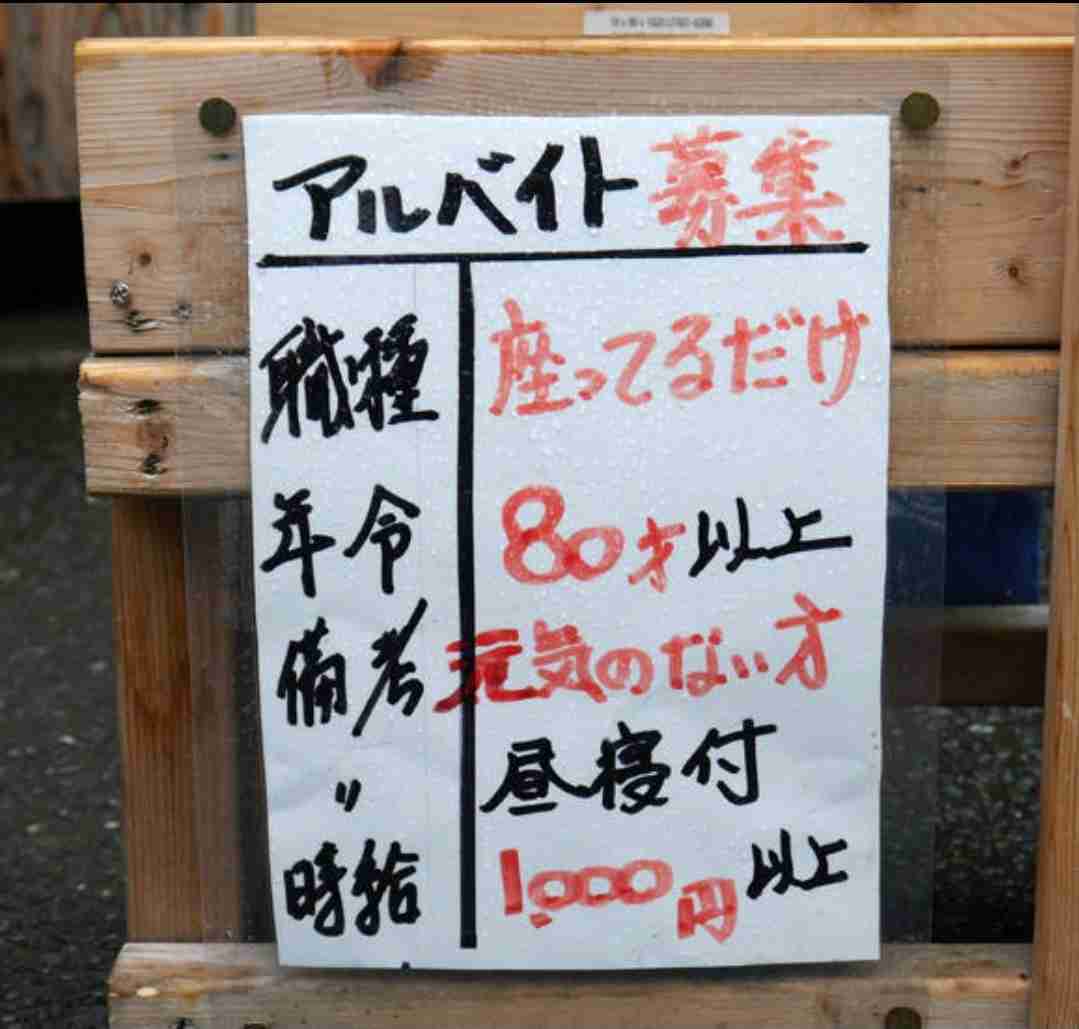 アルバイト募集
職種 座ってるだけ
年令 80才以上
備考 元気のない方
〃 昼寝付
時給 1,000円以上